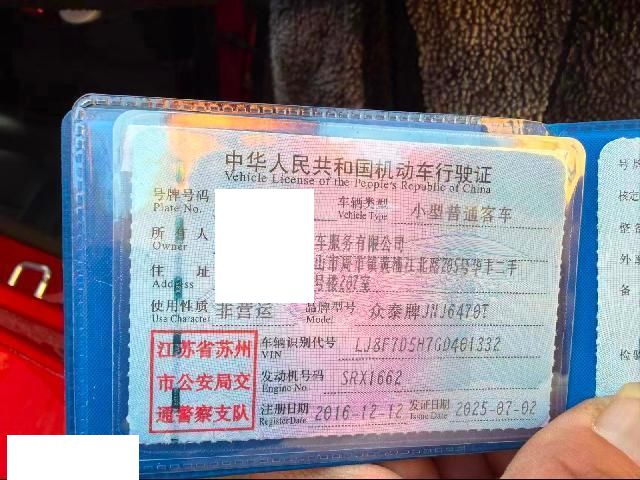 中华人民共和国机动车行驶证
Vehicle License of the People's Republic of China
号牌号码
Plate No.
车辆类型 小型普通客车
Vehicle Type
所有人 车服务有限公司
Owner
住址 山市周市镇黄浦江北路205号华丰二手
Address 号楼207室
使用性质 非营运 品牌型号 众泰牌JNJ6470T
Use Character Model
江苏省苏州
市公安局交
通警察支队
车辆识别代号 LJ8F7D5H7GD401332
VIN
发动机号码 SRX1662
Engine No.
注册日期 2016-12-12 发证日期 2025-07-02
Register Date Issue Date
号
核定
整备
外
备
检验